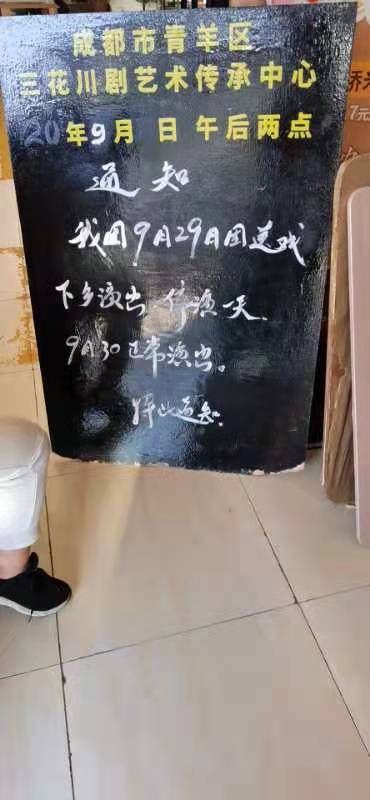 成都市青羊区
三花川剧艺术传承中心
20年9月 日 午后两点
通知
我团9月29日因送戏
下乡演出 停演一天.
9月30正常演出。
特此通知.
7元